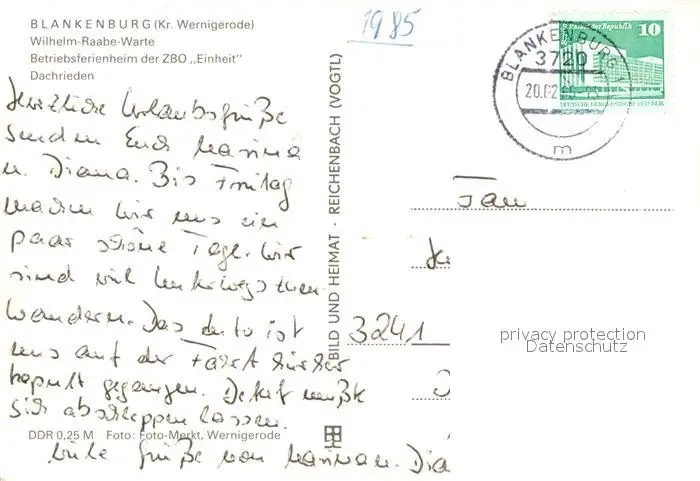 BLANKENBURG (Kr. Wernigerode)
Wilhelm-Raabe-Warte
Betriebsferienheim der ZBO „Einheit“
Dachrieden
1985
BLANKENBURG 1
3720
20.02
m
Palast der Republik 10
DEUTSCHE DEMOKRATISCHE REPUBLIK
Herzliche Urlaubsgrüße
senden Euch
u. Diana. Bis Freitag
machen wir uns ein
paar schöne Tage. Wir
sind viel unterwegs zum
Wandern. Das Auto ist
uns auf der Fahrt
kaputt gegangen. Detlef mußte
sich abschleppen lassen.
Viele Grüße von Dia
BILD UND HEIMAT · REICHENBACH (VOGTL)
Fam
3241
privacy protection
Datenschutz
DDR 0,25 M Foto: Foto-Merkt, Wernigerode